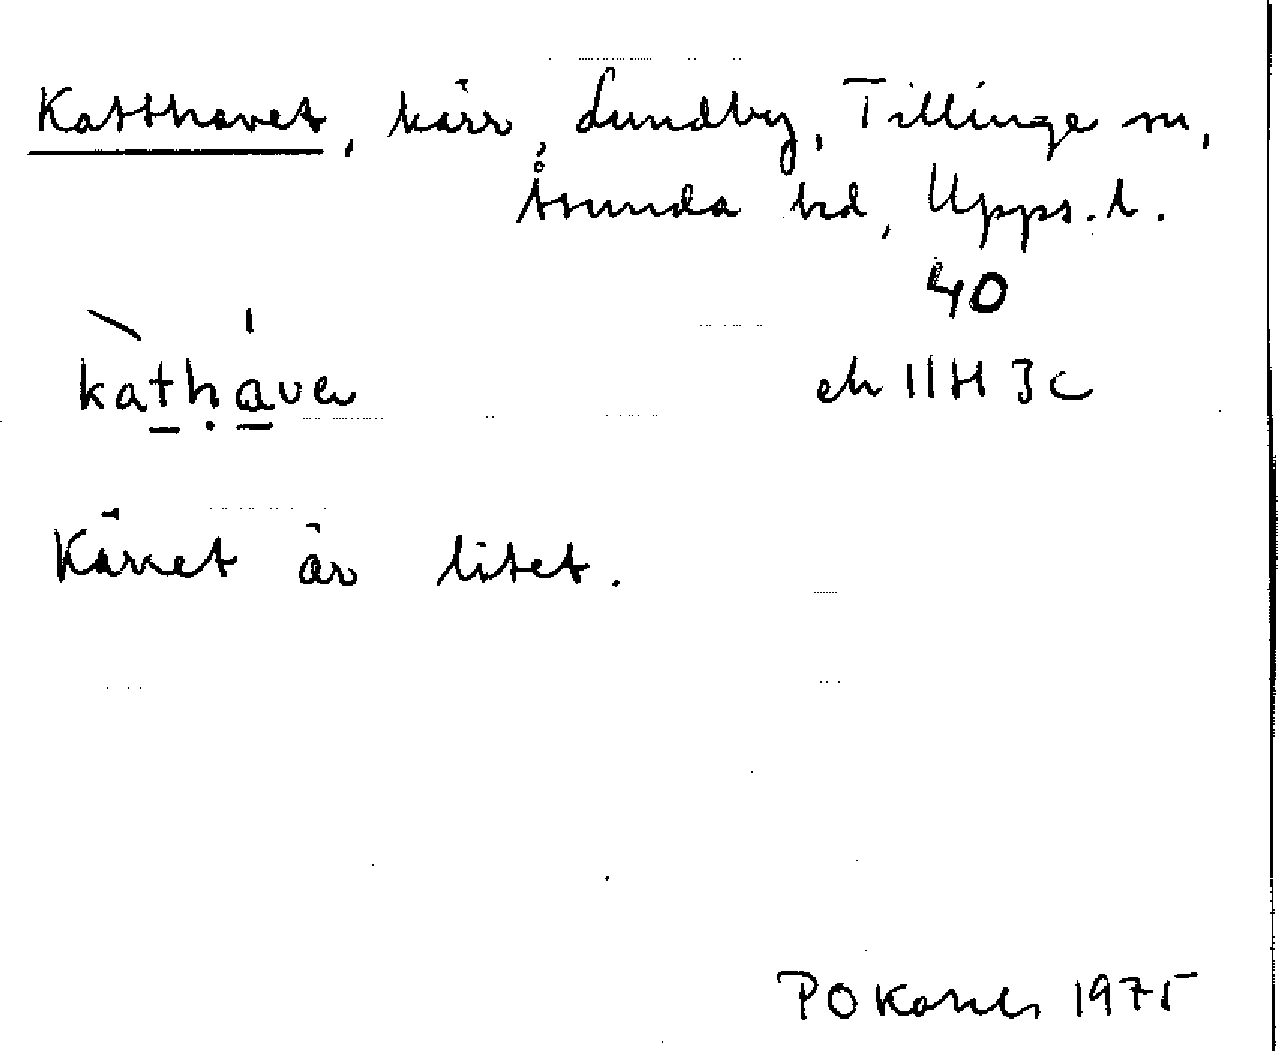 Katthavet, kärr, Lundby, Tillinge sn,
Åsunda hd, Upps. l.
40
kàthávɐ
ek 11H 3c
Kärret är litet.
P O 1975